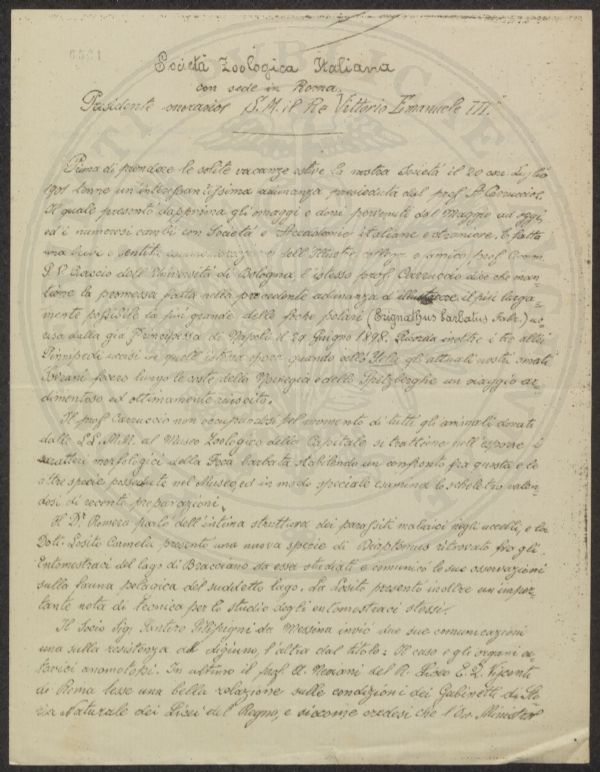 Società Zoologica Italiana
con sede in Roma.
Presidente onorario S. M. il Re Vittorio Emanuele III.
Prima di prendere le solite vacanze estive la nostra Società il 20 cor. Luglio
1901 tenne un'interessantissima adunanza presieduta dal prof. A. Carruccio.
Il quale presentò dapprima gli omaggi e doni pervenuti dal Maggio ad oggi,
ed i numerosi cambi con Società e Accademie italiane e straniere. E fatta
una breve e sentita commemorazione dell'Illustre collega e amico prof. Comm.
G. V. Ciaccio dell'Università di Bologna, l'istesso prof. Carruccio dice che man-
tiene la promessa fatta nella precedente adunanza d'illustrare il più larga-
mente possibile la più grande delle foche polari (Erignathus barbatus Fabr.) uc-
cisa dalla già Principessa di Napoli il 29 Giugno 1898. Ricorda inoltre i tre altri
Pinnipedi uccisi in quell'istessa epoca quando colla Yela gli attuali nostri amati
Sovrani fecero lungo le coste della Norvegia e dello Spitzberghe un viaggio ar-
dimentoso ed ottimamente riuscito.
Il prof. Carruccio non occupandosi pel momento di tutti gli animali donati
dalle LL. M.M. al Museo Zoologico della Capitale si trattiene nell'esporre i
caratteri morfologici della Foca barbata stabilendo un confronto fra questa e le
altre specie possedute nel Museo, ed in modo speciale esamina lo scheletro valen-
dosi di recenti preparazioni.
Il Dr. Romera parlò dell'intima struttura dei parassiti malarici negli uccelli, e la
Dott. Losito Carmela presentò una nuova specie di Diaptomus ritrovato fra gli
Entomostraci del lago di Bracciano da essa studiati e comunicò le sue osservazioni
sulla fauna pelagica del suddetto lago. La Losito presentò inoltre un'impor-
tante nota di tecnica per lo studio degli entomostraci stessi.
Il Socio Sig. Santero da Messina inviò due sue comunicazioni
una sulla resistenza al digiuno, l'altra dal titolo: Il caso e gli organi
In ultimo il prof. A. Neviani del R. Liceo E. Q. Visconti
di Roma lesse una bella relazione sulle condizioni dei Gabinetti di Sto-
ria Naturale dei Licei del Regno, e siccome credesi che l'On. Ministro